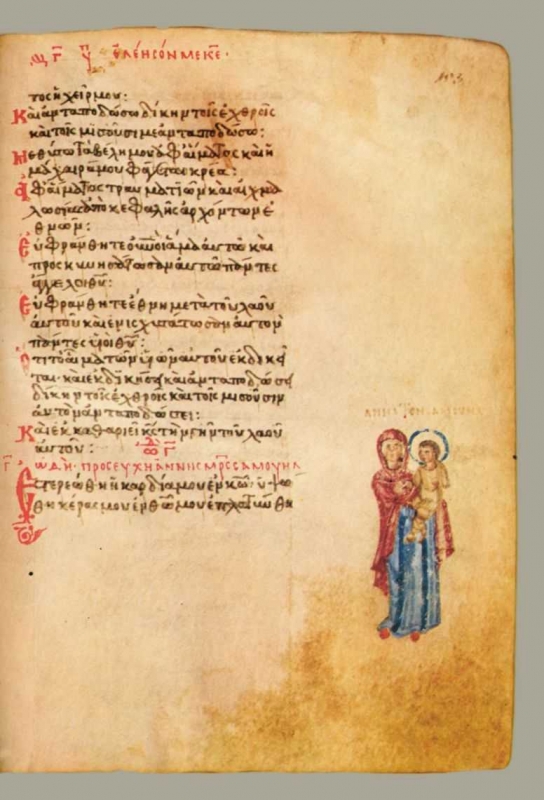 ἐλέησόν με κε·
τος ἡ χείρ μου:
Καὶ ἀνταποδώσω δίκην τοῖς ἐχθροῖς
καὶ τοῖς μισοῦσί με ἀνταποδώσω:
Μεθύσω τὰ βέλη μου ἀφ' αἵματος καὶ ἡ
μάχαιρά μου φάγεται κρέα:
ἀφ' αἵματος τραυματιῶν καὶ αἰχμα
λωσίας ἀπὸ κεφαλῆς ἀρχόντων ἐ
θνῶν:
Εὐφράνθητε οὐνοὶ ἅμα αὐτῶ καὶ
προσκυνησάτωσαν αὐτῶ πάντες
ἄγγελοι θυ:
Εὐφράνθητε ἔθνη μετὰ τοῦ λαοῦ
αὐτοῦ καὶ ἐνισχυσάτωσαν αὐτὸν
πάντες υἱοὶ θυ:
Ὅτι τὸ αἷμα τῶν υἱῶν αὐτοῦ ἐκδικεῖ
ται· καὶ ἐκδικήσει καὶ ἀνταποδώσει
δίκην τοῖς ἐχθροῖς καὶ τοῖς μισοῦσιν
αὐτὸν ἀνταποδώσει:
Καὶ ἐκκαθαριεῖ κς τὴν γῆν τοῦ λαοῦ
αὐτοῦ:
ᾠδ γ
ὠδὴ προσευχὴ ἄννης μρς σαμουὴλ
Ἐστερεώθη ἡ καρδία μου ἐν κω· ὑψώ
θη κέρας μου ἐν θω μου ἐπλατύνθη
ΑΝΝΗ